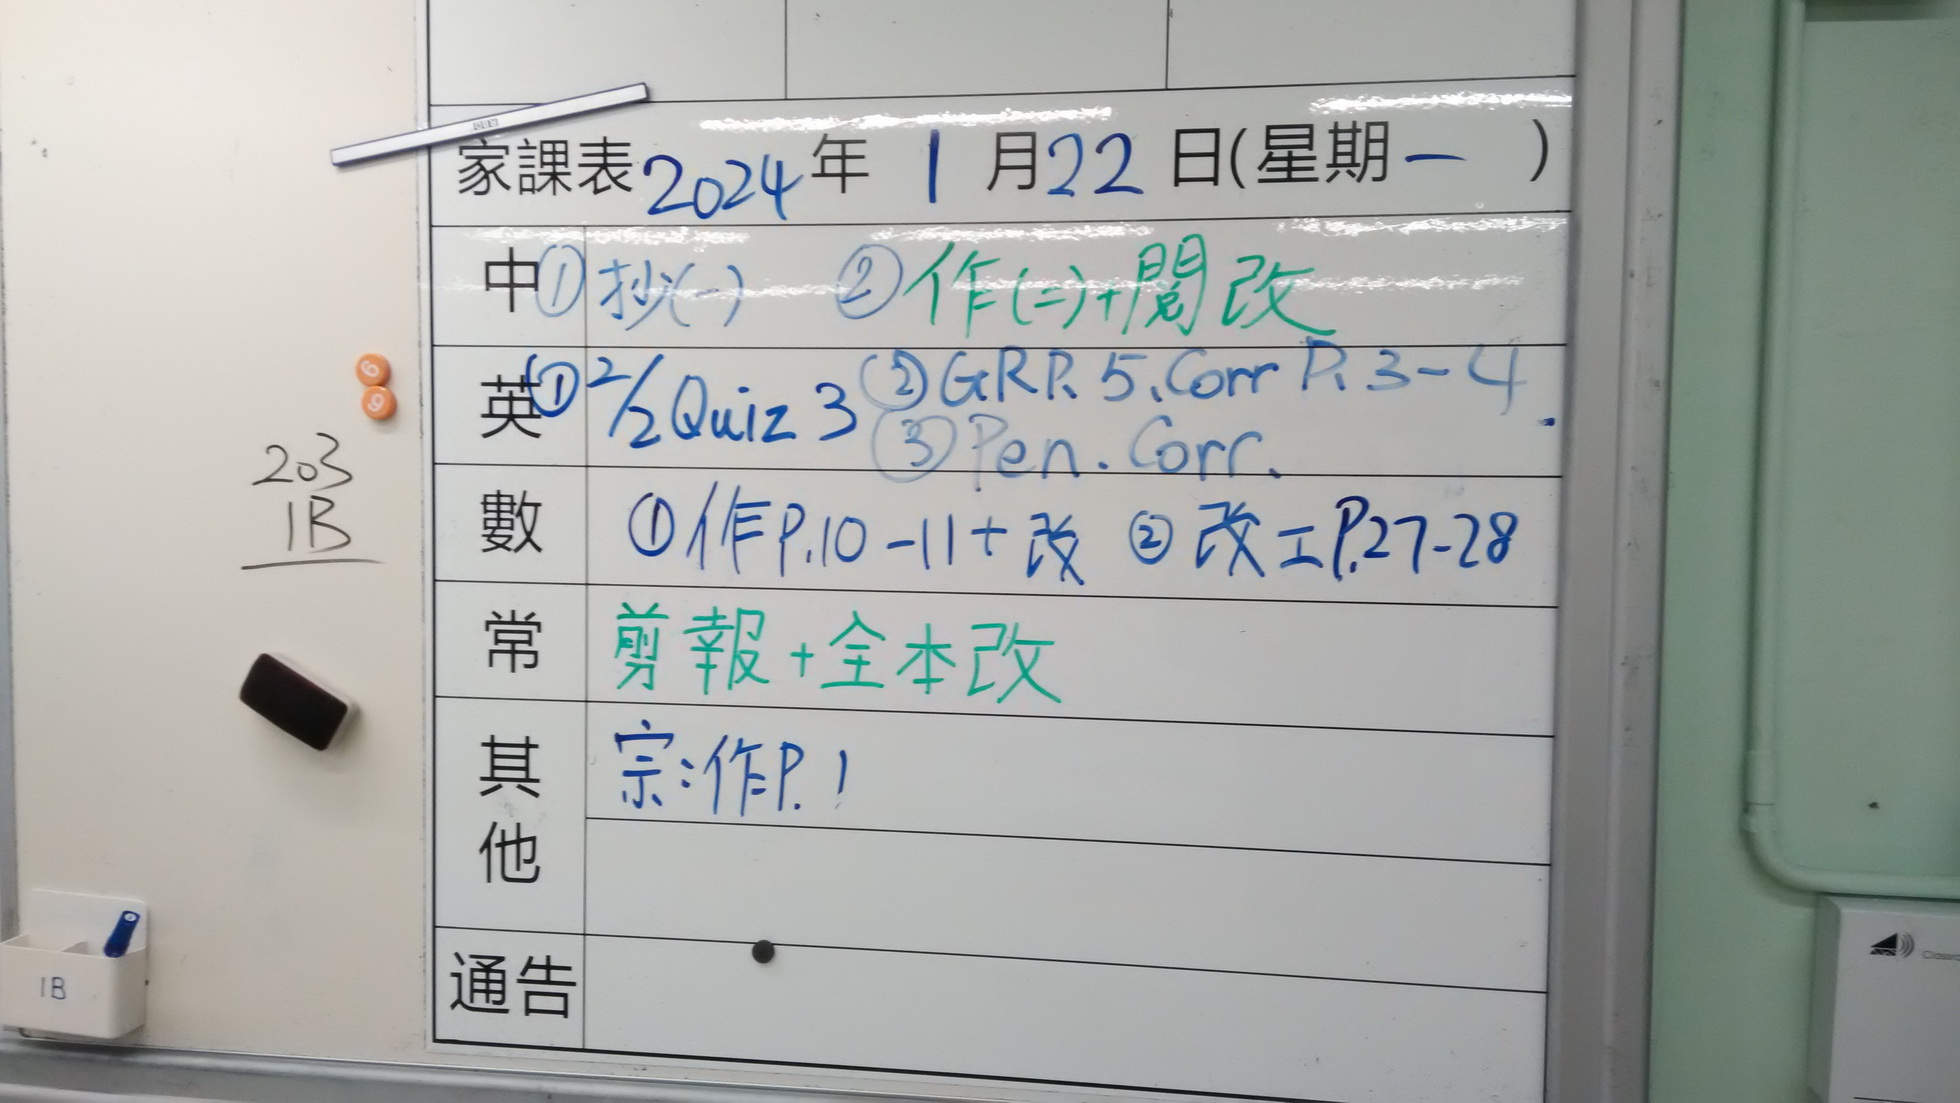 家課表2024年 1月22日(星期一 )
中 ① 抄(一) ② 作(二)+閱改
英 ① 2/2 Quiz 3 ② GR P. 5, Corr P. 3-4.
③ Pen. Corr.
數 ① 作P.10-11+改 ② 改工P.27-28
常 剪報+全本改
其他 宗:作P.1
通告
203
1B
6
9
1B